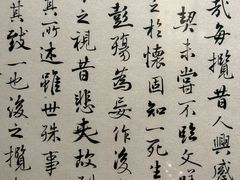 哉每攬昔人興感
契未嘗不臨文
之於懷固知一死生
彭殤為妄作後
之視昔悲夫故
其所述雖世殊事
其致一也後之攬